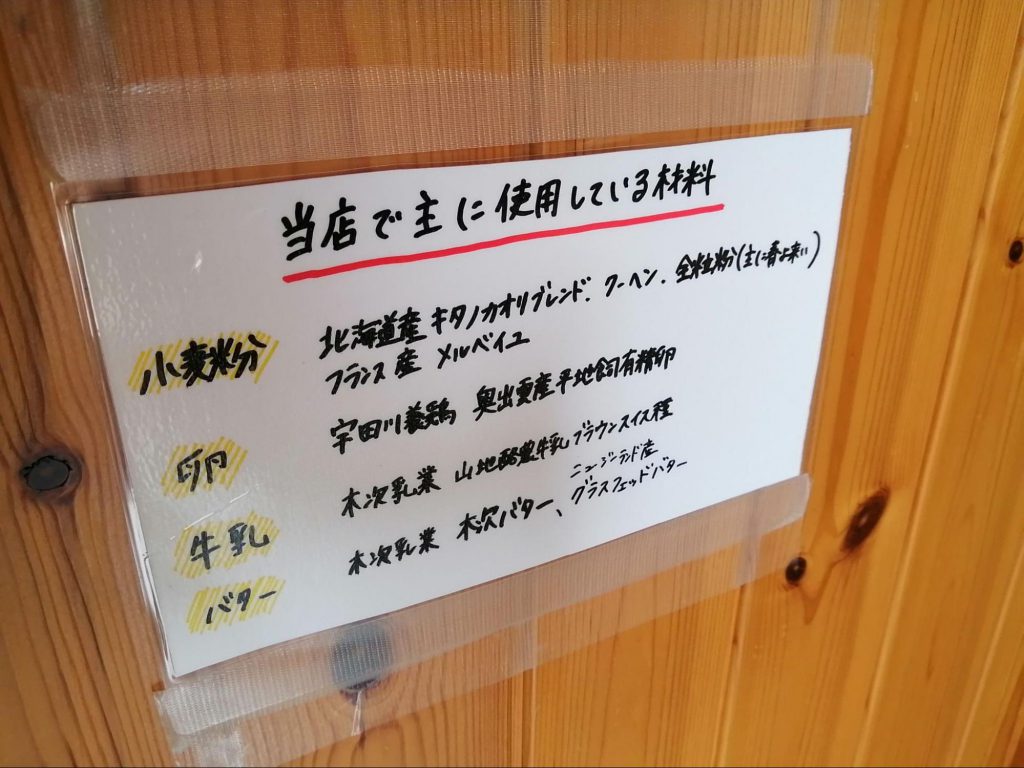 当店で主に使用している材料
小麦粉 北海道産 キタノカオリブレンド、クーヘン、全粒粉(主に春よ来い)
フランス産 メルベイユ
卵 宇田川養鶏 奥出雲産平地飼有精卵
牛乳 木次乳業 山地酪農牛乳 ブラウンスイス種
バター 木次乳業 木次バター、ニュージーランド産
グラスフェッドバター